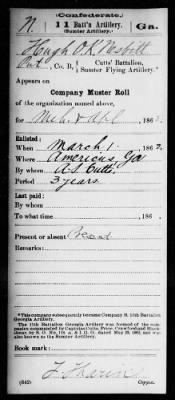 (Confederate.)
N. 11 Batt'n Artillery. Ga.
(Sumter Artillery.)
Hugh O'K. Nesbitt
Pvt., Co. B, { Cutts' Battalion, Sumter Flying Artillery.*
Appears on
Company Muster Roll
of the organization named above,
for Mch & Apl, 1862.
Enlisted:
When March 1, 1862.
Where Americus, Ga
By whom A S Cutts
Period 3 years
Last paid:
By whom
To what time , 186 .
Present or absent Present
Remarks:
*This company subsequently became Company B, 11th Battalion
Georgia Artillery.
The 11th Battalion Georgia Artillery was formed of the companies
Book mark:
(642) Copyist.